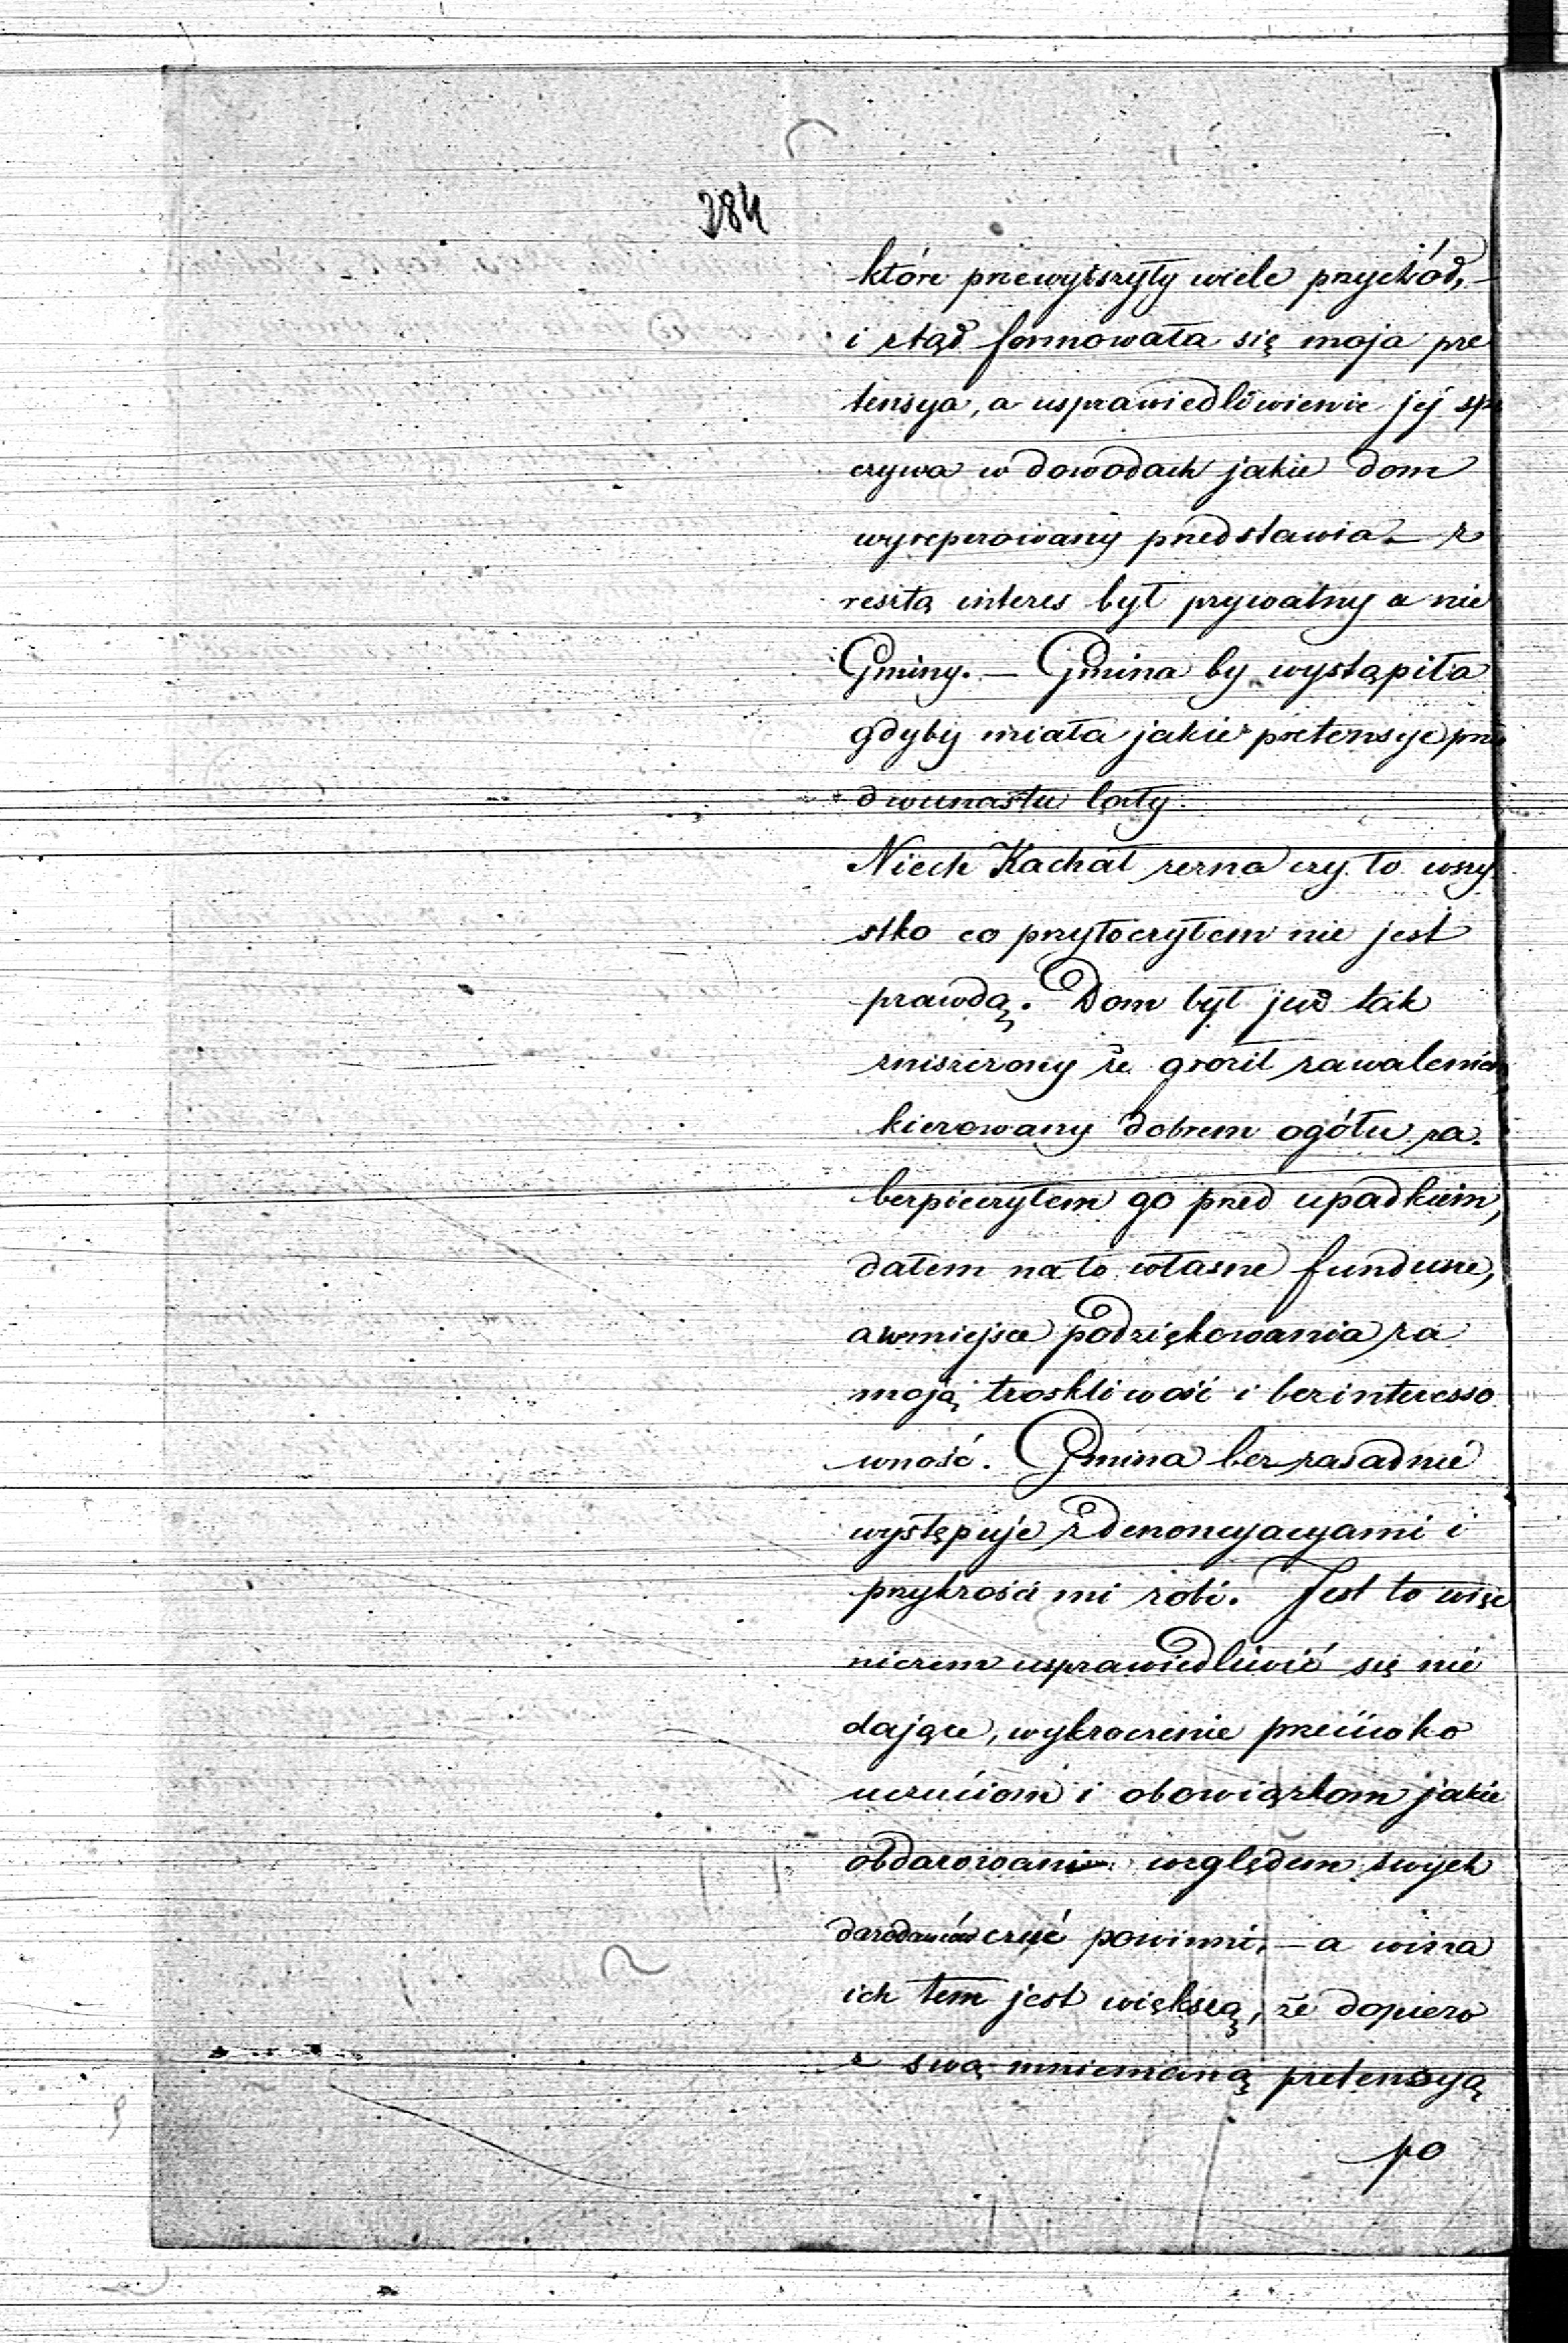 284
które przewyższyły wiele przychód, –
i ztąd formowała się moja pre
tensya, a usprawiedliwienie jéj spo
czywa w dowodach jakie dom
wyreperowany przedstawia – z
resztą interes był prywatny a nie
Gminy. – Gmina by wystąpiła
gdyby miała jakie pretensye prze
dwunastu laty.
Niech Kachał zezna czy to wszy
stko co przytoczyłem nie jest
prawdą. Dom był już tak
zniszczony że groził zawaleniem
kierowany dobrem ogółu za
bezpieczyłem go przed upadkiem,
dałem na to własne fundusze,
a w miejsce podziękowania za
moją troskliwość i bezinteresso
wność. Gmina bezzasadnie
występuje z denoncyacyami i
przykrości mi robi. Jest to więc
niczem usprawiedliwić się nie
dające, wykroczenie przeciwko
uczuciom i obowiązkom jakie
obdarowani względem swych
darodawców czuć powinni, – a wina
ich tem jest większą, że dopiero
z swą mniemaną pretensyą
po